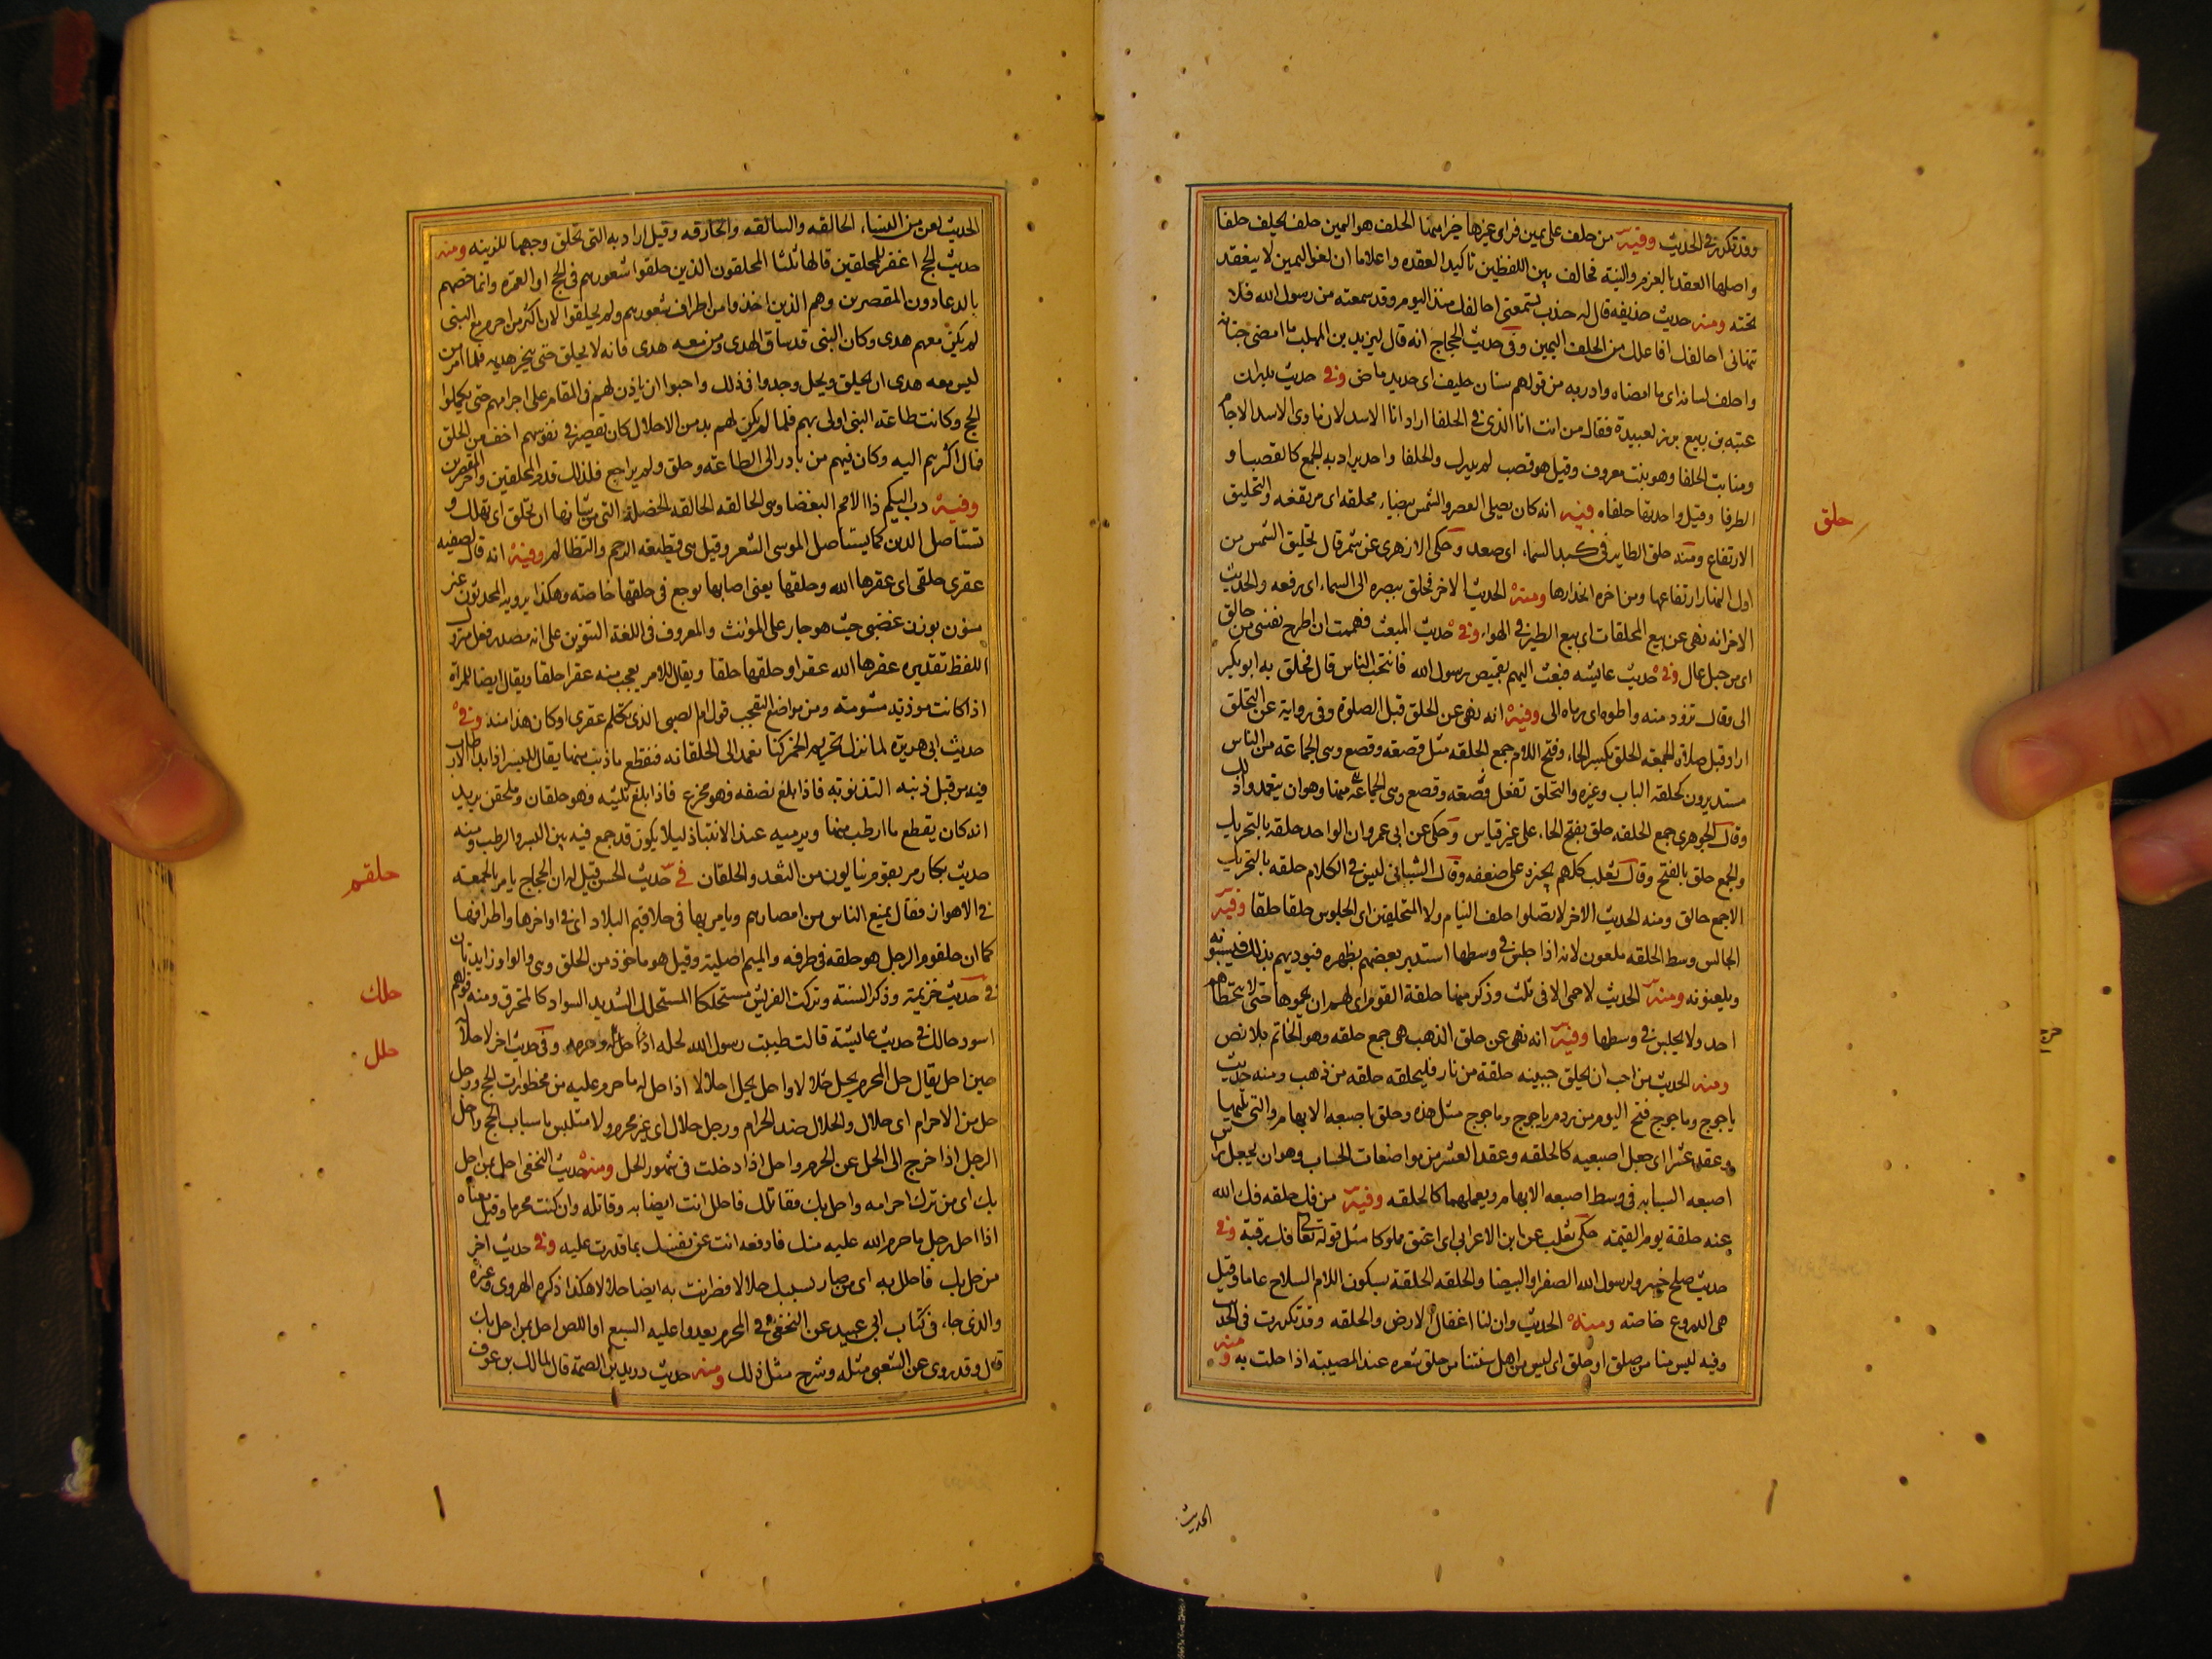 وقد تكرر في الحديث وفيه من حلف على يمين فراى غيرها خيرا منها الحلف هو اليمين حلف يحلف حلفا
واصلها العقد بالعزم والنية فخالف بين اللفظين تاكيدا لعقده واعلاما ان لغو اليمين لا ينعقد
تحته ومنه حديث حذيفه قال له جندب تسمعني احالفك منذ اليوم وقد سمعته من رسول الله فلا
تنهاني احالفك افاعلك من الحلف اليمين وفي حديث الحجاج انه قال ليزيد بن المهلب ما امضى جنانه
واحلف لسانه اى ما امضاه واذربه من قولهم سنان حليف اى حديد ماض وفي حديث بدر ان
عتبه بن ربيع برز لعبيدة فقال من انت انا الذى في الحلفا اراد انا الاسد لان ماوى الاسد الاجام
ومنابت الحلفا وهو نبت معروف وقيل هو قصب لم يدرك والحلفا واحد يراد به الجمع كالقصبا و
الطرفا وقيل واحدتها حلفاه فيه انه كان يصلى العصر والشمس بيضاء محلقه اى مرتفعه والتحليق
حلق
الارتفاع ومنه حلق الطاير في كبد السماء اى صعد وحكى الازهرى عن شمر قال تحليق الشمس من
اول النهار ارتفاعها ومن اخره انحدارها ومنه الحديث الاخر فحلق ببصره الى السماء اى رفعه والحديث
الاخر انه نهى عن بيع المحلقات اى بيع الطير في الهواء وفي حديث المبعث فهممت ان اطرح نفسى من حالق
اى من جبل عال وفي حديث عايشه فبعث اليهم بقميص رسول الله فانتحب الناس قال فحلق به ابو بكر
الى وقال تزود منه واطوه اى رماه الى وفيه انه نهى عن الحلق قبل الصلوة وفي رواية عن التحلق
اراد قبل صلاة الجمعه الحلق بكسر الحاء وفتح اللام جمع الحلقه مثل قصعه وقصع وهى الجماعة من الناس
مستديرون كحلقه الباب وغيره والتحلق تفعل منها وهو ان يتعمدوا ذلك
وقال الجوهرى جمع الحلقه حلق بفتح الحاء على غير قياس وحكى عن ابى عمرو ان الواحد حلقه بالتحريك
والجمع حلق بالفتح وقال ثعلب كلهم يجيزه على ضعفه وقال الشيبانى ليس في الكلام حلقه بالتحريك
الا جمع حالق ومنه الحديث الاخر لا تصلوا خلف النيام ولا المتحلقين اى الجلوس حلقا حلقا وفيه
الجالس وسط الحلقه ملعون لانه اذا جلس في وسطها استدبر بعضهم بظهره فيوذيهم بذلك فيسبونه
ويلعنونه ومنه الحديث لا حمى الا في ثلث وذكر منها حلقة القوم اى لهم ان يحموها حتى لا يتخطاهم
احد ولا يجلس في وسطها وفيه انه نهى عن حلق الذهب هى جمع حلقه وهو الخاتم بلا نص
ومنه الحديث من احب ان يحلق جبينه حلقة من نار فليحلقه حلقه من ذهب ومنه حديث
ياجوج وماجوج فتح اليوم من ردم ياجوج وماجوج مثل هذه وحلق باصبعه الابهام والتى تليها
وعقد عشرا اى جعل اصبعيه كالحلقه وعقد العشر من مواضعات الحساب وهو ان يجعل راس
اصبعه السبابه في وسط اصبعه الابهام ويعملهما كالحلقه وفيه من فك حلقه فك الله
عنه حلقة يوم القيمه حكى ثعلب عن ابن الاعرابى اى اعتق مملوكا مثل قوله تعا فك رقبة وفي
حديث صلح خيبر ولرسول الله الصفرا والبيضا والحلقه الحلقة بسكون اللام السلاح عاما وقيل
هى الدروع خاصه ومنه الحديث وان لنا اغفال الارض والحلقه وقد تكررت في الحديث
وفيه ليس منا من صلق او حلق اى ليس من اهل سنتنا من حلق شعره عند المصيبه اذا حلت به ومنه
الحديث
الحديث لعن من النساء الحالقه والسالقه والخارقه وقيل اراد به التى تحلق وجهها للزينه ومنه
حديث الحج اغفر للمحلقين قالها ثلثا المحلقون الذين حلقوا شعورهم في الحج او العمره وانما خصهم
بالدعا دون المقصرين وهم الذين اخذوا من اطراف شعورهم ولم يحلقوا لان اكثر من احرم مع النبى
لم يكن معهم هدى وكان النبى قد ساق الهدى ومن معه هدى فانه لا يحلق حتى ينحر هديه فلما امر من
ليس معه هدى ان يحلق ويحل وجدوا في ذلك واحبوا ان ياذن لهم في المقام على احرامهم حتى يكملوا
الحج وكانت طاعة النبى اولى بهم فلما لم يكن لهم بد من الاحلال كان تقصير في نفوسهم اخف من الحلق
فمال اكثرهم اليه وكان فيهم من بادر الى الطاعه وحلق ولم يراجع فلذلك قدم المحلقين واخر المقصرين
وفيه دب اليكم داء الامم البغضا وهى الحالقه الحالقه الخصلة التى من شانها ان تحلق اى تهلك و
تستاصل الدين كما يستاصل الموسى الشعر وقيل هى قطيعه الرحم والتظالم وفيه انه قال لصفيه
عقرى حلقى اى عقرها الله وحلقها يعنى اصابها وجع في حلقها خاصه وهكذا يرويه المحدثون غير
منون بوزن غضبى حيث هو جار على المونث والمعروف في اللغة التنوين على انه مصدر فعل متروك
اللفظ تقديره عقرها الله عقرا وحلقها حلقا ويقال للامر يعجب منه عقرا حلقا ويقال ايضا للمراة
اذا كانت موذيه مشومه ومن مواضع التعجب قول ام الصبى الذى تكلم عقرى اوكان هذا منه وفي
حديث ابى هريرة لما نزل تحريم الخمر كنا نعمد الى الحلقانه فنقطع ما ذنب منها يقال للبسر اذا بدا الارطاب
فيه من قبل ذنبه التذنوبه فاذا بلغ نصفه فهو مجزع فاذا بلغ ثلثيه فهو حلقان ومحلقن يريد
انه كان يقطع ما ارطب منها ويرميه عند الانتباذ ليلا يكون قد جمع فيه بين البسر والرطب ومنه
حديث بكار مر بقوم ينالون من الثعد والحلقان في حديث الحسن قيل له ان الحجاج يامر بالجمعه
حلقم
في الاهواز فقال يمنع الناس من امصارهم ويامر بها في حلاقيم البلاد اى في اواخرها واطرافها
كما ان حلقوم الرجل هو حلقه في طرفه والميم اصلية وقيل هو ماخوذ من الحلق وهى والواو زايدتان
في حديث خزيمه وذكر السنه وتركت الفريش مستحلكا المستحلك الشديد السواد كالمحترق ومنه قولهم
حلك
اسود حالك في حديث عايشة قالت طيبت رسول الله لحله وحرمه وفي حديث اخر لاحلاله
حلل
حين احل يقال حل المحرم يحل حلالا واحل يحل احلالا اذا حل له ما حرم عليه من محظورات الحج ورجل
حل من الاحرام اى حلال والحلال ضد الحرام ورجل حلال اى غير محرم ولا متلبس باسباب الحج واحل
الرجل اذا خرج الى الحل عن الحرم واحل اذا دخلت في شهور الحل ومنه حديث النخعى احل بمن احل
بك اى من ترك احرامه واحل بك فقاتلك فاحلل انت ايضا به وقاتله وان كنت محرما وقيل معناه
اذا احل رجل ما حرم الله عليه منك فادفعه انت عن نفسك بما قدرت عليه وفي حديث اخر
من حل بك فاحلل به اى من صار بسببك حلالا فصر انت به ايضا حلالا هكذا ذكره الهروى وغيره
والذى جاء في كتاب ابى عبيد عن النخعى في المحرم يعدوا عليه السبع او اللص احل بمن احل بك
قال وقد روى عن الشعبى مثله وشرح مثل ذلك ومنه حديث دريد بن الصمة قال لمالك بن عوف